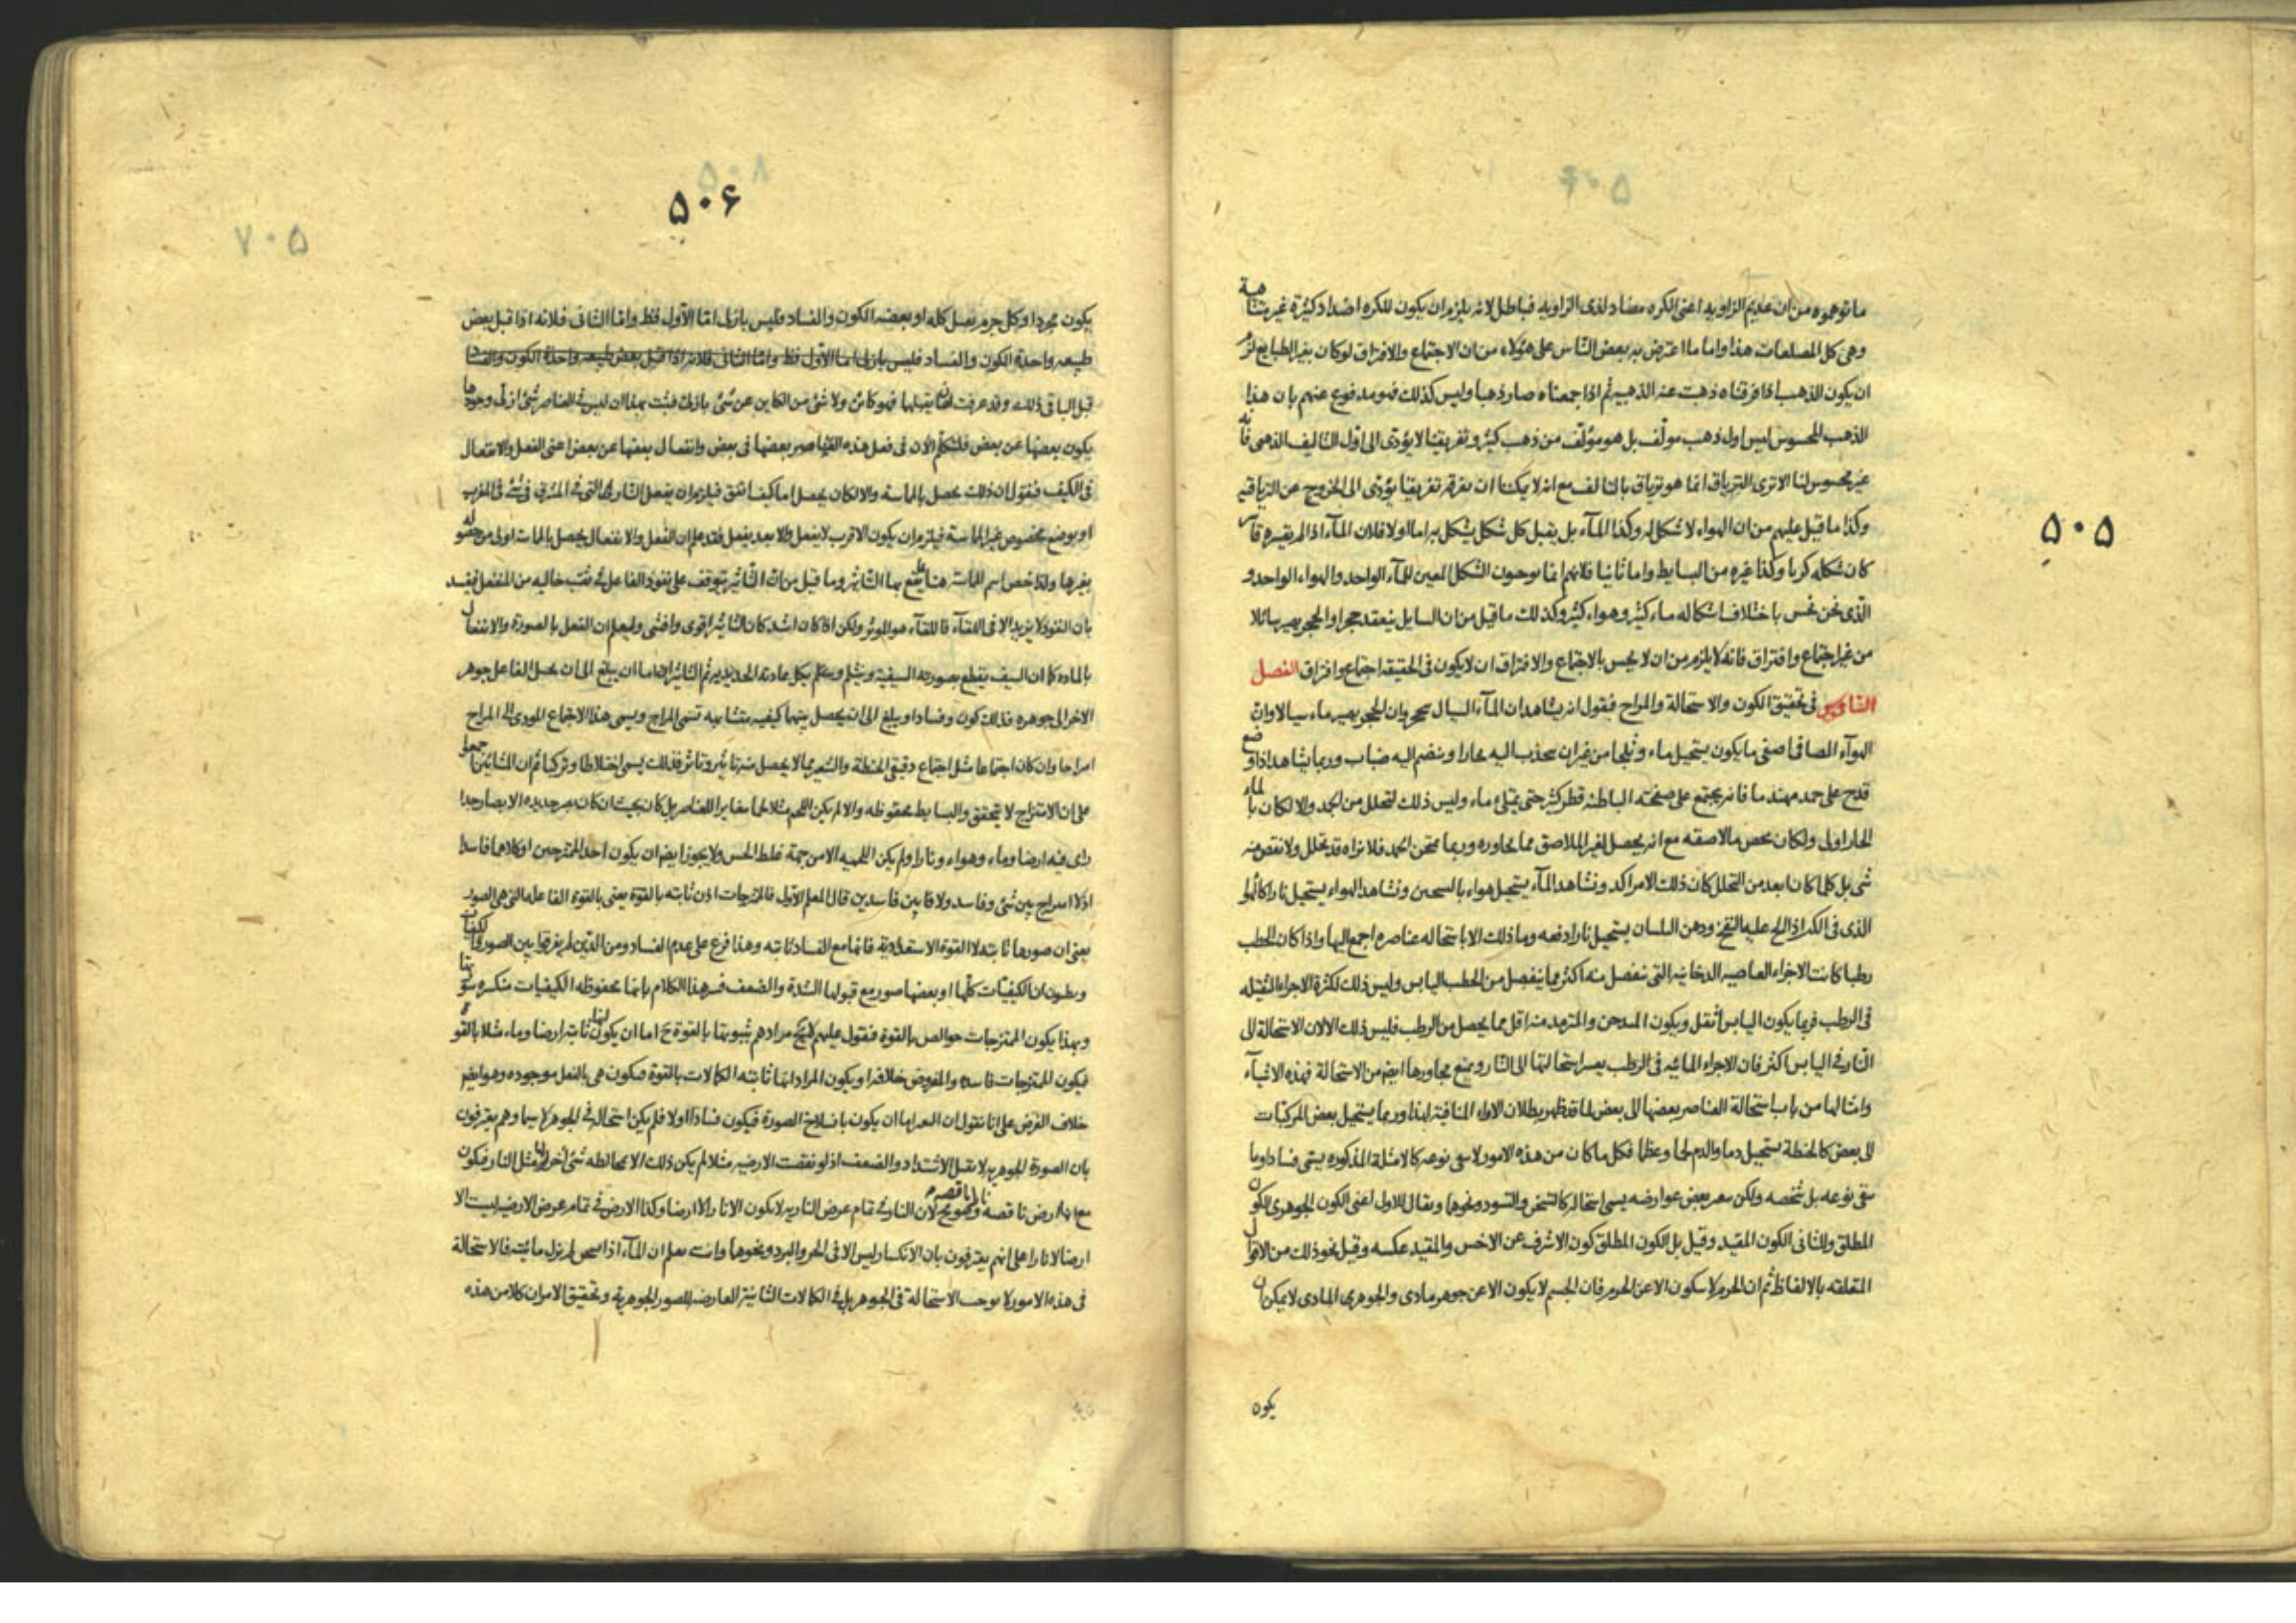 ۵۰۵
ما توهموه من ان عديم الزاويه اعنى الكره مضاد لذى الزاويه فباطل لانه يلزم ان يكون للكره اضداد كثيرة غير متناهية
وهى كل المضلعات هذا واما ما اعترض به بعض الناس على هؤلاء من ان الاجتماع والافتراق لو كان بغير الطبايع لزم
ان يكون الذهب اذا فرقناه ذهبت عنه الذهبيه ثم اذا جمعناه صار ذهبا وليس كذلك فهو مدفوع عنهم بان هذا
الذهب المحسوس ليس اول ذهب مولف بل هو مؤلف من ذهب كثير وتفريقنا لا يؤدى الى اول التاليف الذهبى فانه
غير محسوس لنا الا ترى الترياق انما هو ترياق بالتالف مع انه لا يمكننا ان نفرقه تفريقا يؤدى الى الخروج عن الترياقيه
وكذا ما قيل عليهم من ان الهواء لا شكل له وكذا المآء بل يقبل كل شكل يشكل به اما اولا فلان المآء اذا لم يقسره قاسر
كان شكله كريا وكذا غيره من البسايط واما ثانيا فلانهم انما يوجبون الشكل المعين للمآء الواحد والهواء الواحد و
الذى نحن نحس باختلاف اشكاله ماء كثير وهواء كثير وكذلك ما قيل من ان السايل ينعقد حجرا والحجر يصير سائلا
من غير اجتماع وافتراق فانه لا يلزم من ان لا يحس بالاجتماع والافتراق ان لا يكون فى الحقيقه اجتماع وافتراق الفصل
فى تحقيق الكون والاستحالة والمزاج فنقول انه يشاهد ان المآء السيال يتحجر وان الحجر يصير ماء سيالا وان
الهوآء الصافى اصفى ما يكون يستحيل ماء وثلجا من غير ان ينجذب اليه بخار او ينضم اليه ضباب وربما يشاهد اذا وضع
قدح على جمد مهندما فانه يجتمع على صفحته الباطنه قطر كثير حتى يمتلئ ماء وليس ذلك لتحلل من الجمد والا لكان بالماء
الحار اولى ولكان يخص ما لاصقه مع انه يحصل لغير الملاصق مما يجاوره وربما يمتحن الجمد فلا نراه قد تحلل ولا نقص منه
شى بل كلما كان ابعد من التحلل كان ذلك الامر اكد ونشاهد المآء يستحيل هواء بالتسخين ونشاهد الهواء يستحيل نارا كالهواء
الذى فى الكير اذا الح عليه النفخ ودهن البلسان يستحيل نارا دفعه وما ذلك الا باستحاله عناصره اجمع اليها واذا كان الحطب
رطبا كانت الاجزاء العاصيه الدخانيه التى تنفصل منه اكثر مما ينفصل من الحطب اليابس وليس ذلك لكثرة الاجزاء الثقيله
فى الرطب فربما يكون اليابس اثقل ويكون المدخن والمترمد منه اقل مما يحصل من الرطب فليس ذلك الا لان الاستحالة الى
النار فى اليابس اكثر فان الاجزاء المائيه فى الرطب يعسر استحالتها الى النار ويمنع مجاورها ايضا من الاستحالة فهذه الاشيآء
وامثالها من باب استحالة العناصر بعضها الى بعض لما قد ظهر بطلان الاراء المنافية لهذا وربما يستحيل بعض المركبات
الى بعض كالحنطة يستحيل دما والدم لحما وعظما فكل ما كان من هذه الامور لا يبقى نوعه كالامثلة المذكوره يسمى فسادا وما
يبقى نوعه بل شخصه ولكن يتغير بعض عوارضه يسمى استحاله كالتسخن والتسود ونحوها ويقال للاول اعنى الكون الجوهرى الكون
المطلق وللثانى الكون المقيد وقيل بل الكون المطلق كون الاشرف عن الاخس والمقيد عكسه وقيل نحو ذلك من الاقوال
المتعلقه بالالفاظ ثم ان الجرم لا يتكون الا عن الجرم فان الجسم لا يكون الا عن جوهر مادى والجوهر المادى لا يمكن ان
يكون
۵۰۶
يكون مجردا وكل جرم يقبل كله او بعضه الكون والفساد فليس بازلى اما الاول فظ واما الثانى فلانه اذا قبل بعض
طبيعه واحدة الكون والفساد فليس بازلى اما الاول فظ واما الثانى فلانه اذا قبل بعض طبيعه واحدة الكون والفساد
قبل الباقى ذلك وقد عرفت ان ما يقبلها فهو كائن ولا شئ من الكاين عن شئ بازلى فثبت بهذا ان ليس فى العناصر شئ ازلى وجودها
يكون بعضها عن بعض فلنتكلم الان فى فعل هذه العناصر بعضها فى بعض وانفعال بعضها عن بعض اعنى الفعل والانفعال
فى الكيف فنقول ان ذلك يحصل بالمماسة والا لكان يحصل اما كيف اتفق فيلزم ان يفعل النار التى فى المشرق فى شئ فى المغرب
او بوضع مخصوص غير المماسة فيلزم ان يكون الاقرب لا ينفعل والابعد ينفعل فقد علم ان الفعل والانفعال يحصل بالمماسة اولى من حصوله
بغيرها ولذا خص اسم المماسة هنا بما يقع بها التاثير وما قيل من ان التاثير يتوقف على نفوذ الفاعل فى ثقب خاليه من المنفعل يفسد
بان النفوذ لا يزيد الا فى اللقآء فاللقآء هو المؤثر ولكن اذا كان اشد كان التاثير اقوى وافشى وليعلم ان الفعل بالصورة والانفعال
بالماده كما ان السيف يقطع بصورته السيفية وينثلم ويكل بمادته الحديديه ثم التاثير ان اما ان يبلغ الى ان يحيل الفاعل جوهر
الاخر الى جوهره فذلك كون وفساد او يبلغ الى ان يحصل بينهما كيفيه متشابهه تسمى المزاج ويسمى هذا الاجتماع المودى الى المزاج
امتزاجا وان كان اجتماعا مثل اجتماع دقيقى الحنطة والشعير مما لا يحصل منه تاثير وتاثر فذلك يسمى اختلاطا وتركيبا ثم ان المشائين اجمعوا
على ان الامتزاج لا يتحقق والبسايط محفوظه والا لم يكن اللحم مثلا لحما مغايرا للعناصر بل كان بحيث ان كان بصر حديد الابصار جدا
راى فيه ارضا وماء وهواء ونارا ولم يكن اللحميه الا من جهة غلط الحس ولا يجوز ايضا ان يكون احد الممتزجين او كلاهما فاسدا
اذ لا امتزاج بين شئ وفاسد ولا فيما بين فاسدين قال المعلم الاول فالممتزجات اذن ثابته بالقوة يعنى بالقوة الفاعله التى هى الصور
يعنى ان صورها ثابته لا القوة الاستعداديه فانها مع الفساد ثابته وهذا فرع على عدم الفساد ومن الذين لم يفرقوا بين الصور والكيفيات
ويظنون ان الكيفيات كلها او بعضها صور مع قبولها الشدة والضعف فسر هذا الكلام بانها محفوظه الكيفيات منكسره سورتها
وبهذا يكون الممتزجات خوالص بالقوة فنقول عليهم مرادهم بثبوتها بالقوة ح اما ان يكون انها ثابته ارضا وماء مثلا بالقوة
فيكون الممتزجات فاسده والمفروض خلافه او يكون المراد انها ثابته الكمالات بالقوة فتكون هى بالفعل موجوده وهو ايضا
خلاف الغرض على انا نقول ان التغير اما ان يكون بانسلاخ الصورة فيكون فسادا اولا فلم يكن استحاله فى الجوهر لا سيما وهم يعترفون
بان الصورة الجوهريه لا تقبل الاشتداد والضعف اذ لو نقصت الارضيه مثلا لم يكن ذلك الا لمخالطه شئ اخر مثل النار فيكون
مع انه ارض ناقصه نارا ناقصه وهو مح لان النار فى تمام عرض الناريه لا يكون الا نارا لا ارضا وكذا الارض فى تمام عرض الارضيه ليست الا
ارضا لا نارا على انهم يعترفون بان الانكسار ليس الا فى الحر والبرد ونحوها وانت تعلم ان المآء اذا سخن لم يزل مائيته فالاستحالة
فى هذه الامور لا يوجب الاستحالة فى الجوهر بل فى الكمالات الثانية العارضه للصور الجوهرية وتحقيق الامر ان كلا من هذه